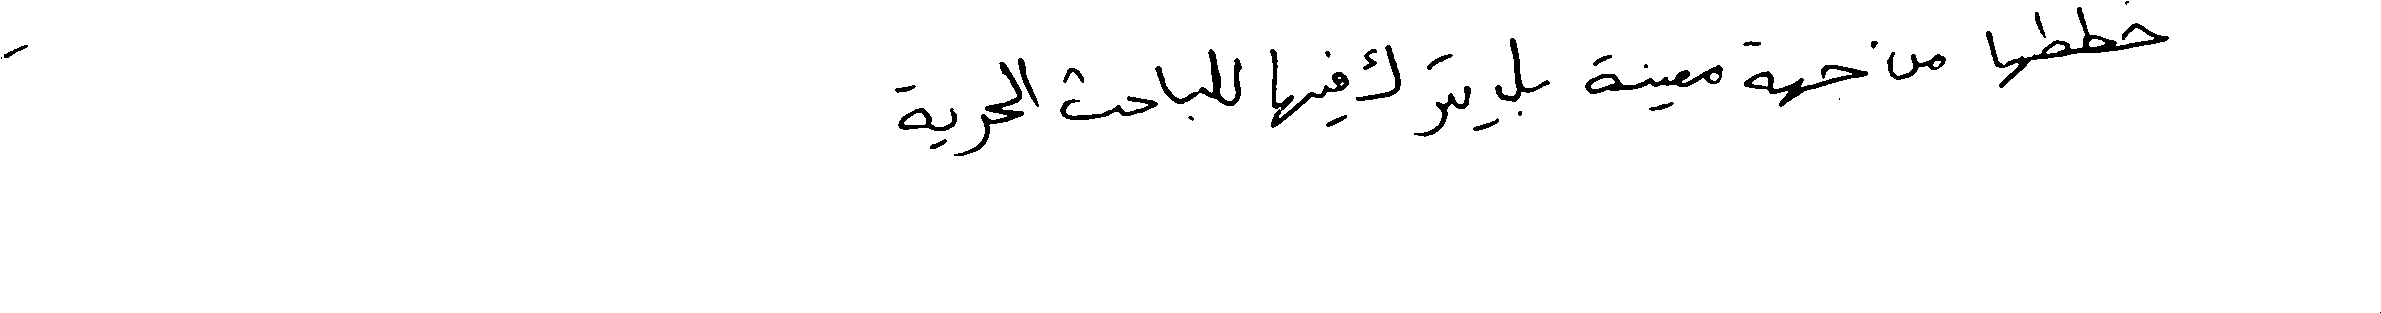 خططها من جهة معينة بل يترك فيها للباحث الحرية